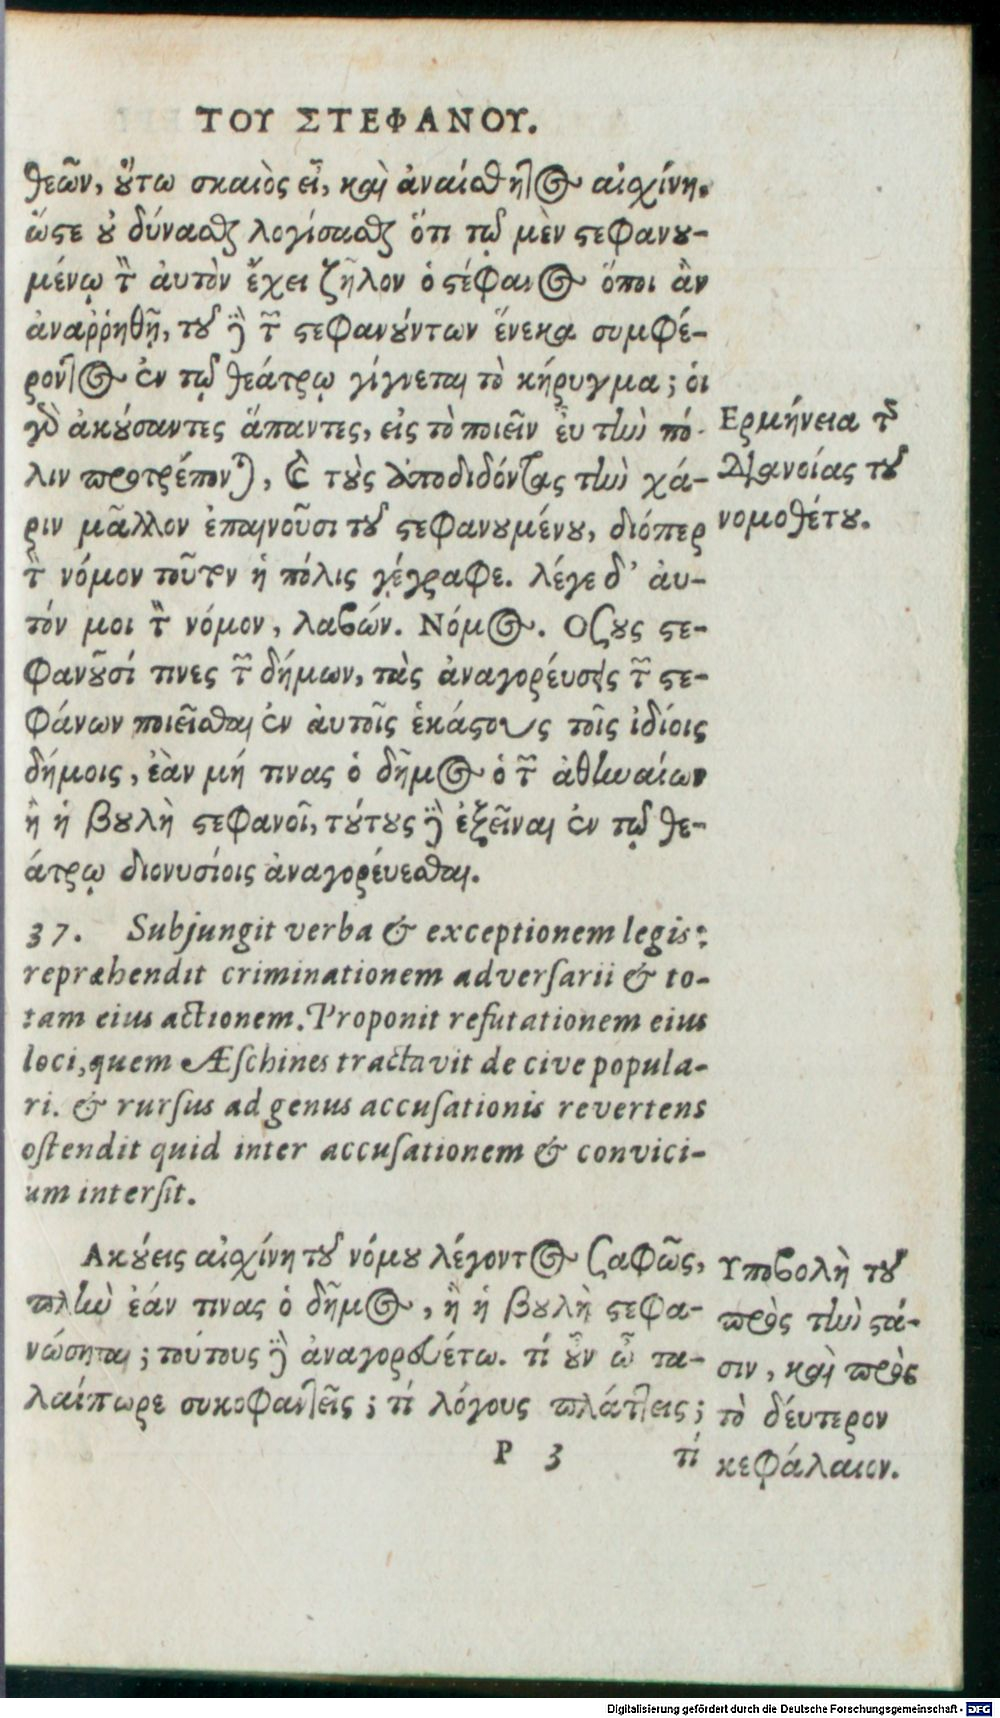 ΤΟΥ ΣΤΕΦΑΝΟΥ.
θεῶν, ὅτω σκαιὸς εἶ, καὶ ἀναίσθητος αἰσχίνη.
ὥστε ȣ δύνασαι λογίσασθαι ὅτι τῷ μὲν στεφανȣ-
μένῳ τὸν ἀυτὸν ἔχει ζῆλον ὁ στέφανος ὅποι ἂν
ἀναῤῥηθῇ, τοῦ δὲ τῶν στεφανȣ́ντων ἕνεκα συμφέ-
ροντος ἐν τῷ θεάτρῳ γίγνεται τὸ κήρυγμα; ὁι
γὸ ἀκȣ́σαντες ἅπαντες, εἰς τὸ ποιεῖν ἐυ τὴν πό-
λιν προτρέπονται, καὶ τȣ̀ς ἀποδιδόντας τὴν χά-
ριν μᾶλλον ἐπαινοῦσι τοῦ στεφανȣμένȣ, διόπερ
τὸν νόμον τοῦτον ἡ πόλις γέγραφε. λέγε δ' ἀυ-
τόν μοι τὸν νόμον, λαβών. Νόμος. Οσȣς στε-
φανȣ͂σί τινες τῶν δήμων, τὰς ἀναγορέυσεις τῶν στε-
φάνων ποιεῖσθαι ἐν ἀυτοῖς ἑκάστους τοῖς ἰδίοις
δήμοις, ἐὰν μή τινας ὁ δῆμος ὁ τῶν ἀθηναίων
ἢ ἡ βȣλὴ στεφανοῖ, τȣ́τȣς δὲ ἐξεῖναι ἐν τῷ θε-
άτρῳ διονυσίοις ἀναγορέυεσθαι.
Ερμήνεια τῆς
διανοίας τοῦ
νομοθέτȣ.
37. Subjungit verba & exceptionem legis:
repræhendit criminationem adversarii & to-
tam eius actionem. Proponit refutationem eius
loci, quem Æschines tractavit de cive popula-
ri. & rursus ad genus accusationis revertens
ostendit quid inter accusationem & convici-
um intersit.
Ακȣ́εις αἰσχίνη τοῦ νόμȣ λέγοντος σαφῶς,
πλὴν ἐάν τινας ὁ δῆμος, ἢ ἡ βȣλὴ στεφα-
νώσηται; τούτους δὲ ἀναγορευέτω. τί ȣ͂ν ὦ τα-
λαίπωρε συκοφαντεῖς; τί λόγους πλάττεις;
Υποβολὴ τοῦ
πρὸς τὴν στά-
σιν, καὶ πρὸς
τὸ δέυτερον
κεφάλαιον.
P 3 τί
Digitalisierung gefördert durch die Deutsche Forschungsgemeinschaft - DFG